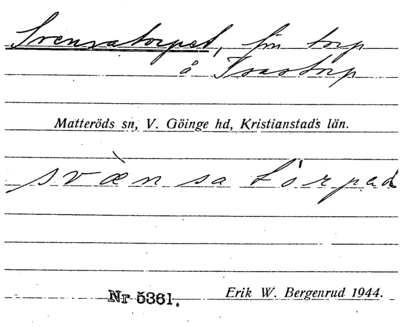 Svensatorpet, fm torp
å Ivastorp
Matteröds sn, V. Göinge hd, Kristianstads län.
svæ̀n sa tórpad
Nr 5361.
Erik W. Bergenrud 1944.